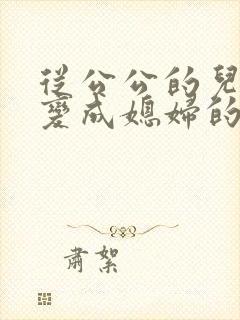 從公公的兒
變成媳婦的
肅絮